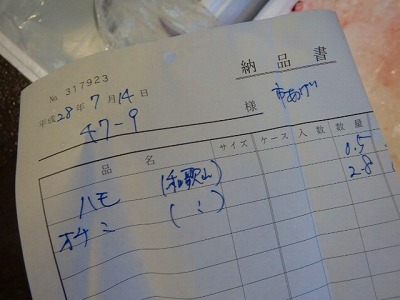 納品書
No 317923
平成28年7月14日
47-9 様
市あげ
品名 サイズ ケース 入数 数量
ハモ (和歌山) 0.5
オチミ (〃) 2.8